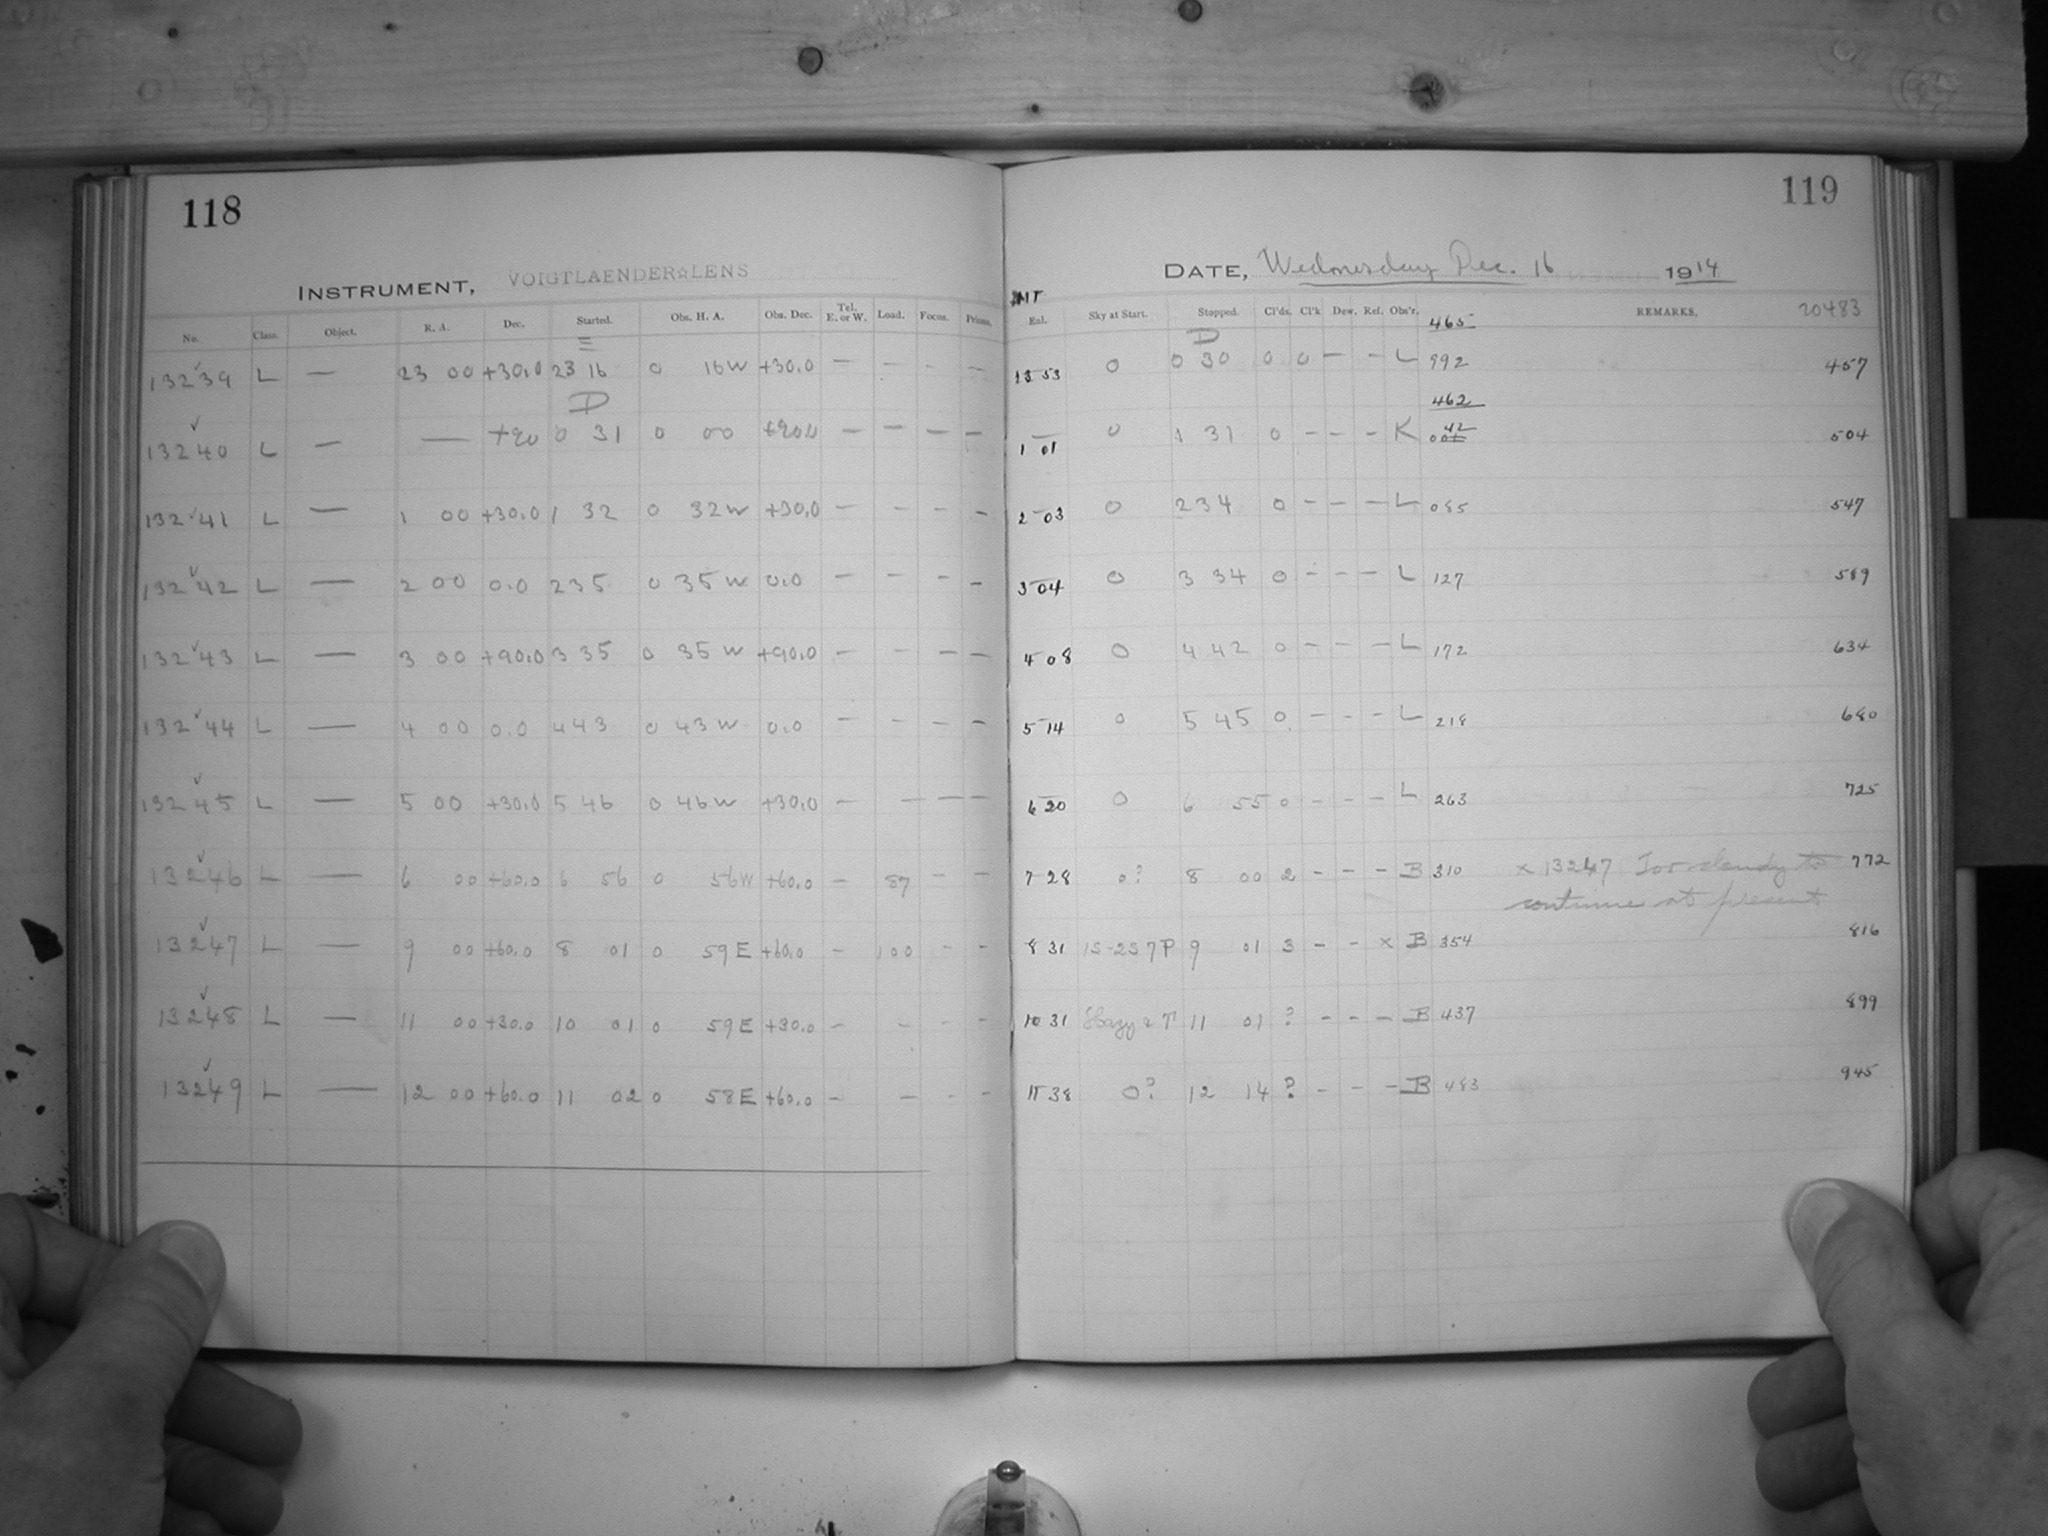 118
119
INSTRUMENT, VOIGTLAENDER LENS
DATE, Wednesday Dec. 16 1914
No. Class. Object. R. A. Dec. Started. Obs. H. A. Obs. Dec. Tel. E. or W. Load. Focus. Prisms.
MT Sky at Start. Stopped. Cl'ds. Cl'k Dew. Ref. Obs'r. REMARKS. 20483
E D 465
13239 L — 23 00 +30.0 23 16 0 16W +30.0 — — - — 23 53 0 0 30 0 0 — - L 992 457
D 462
13240 L — — +90 0 31 0 00 +90.0 — — — — 1 01 0 1 31 0 - - - K 42 504
13241 L — 1 00 +30.0 1 32 0 32W +30.0 — - - - 2 03 0 2 34 0 - — — L 085 547
13242 L — 2 00 0.0 2 35 0 35W 0.0 — - - - 3 04 0 3 34 0 - - - L 127 589
13243 L — 3 00 +90.0 3 35 0 35W +90.0 — - — — 4 08 0 4 42 0 - - - L 172 634
13244 L — 4 00 0.0 4 43 0 43W 0.0 - - - - 5 14 0 5 45 0 - - - L 218 680
13245 L — 5 00 +30.0 5 46 0 46W +30.0 — — — — 6 20 0 6 55 0 - - - L 263 725
13246 L — 6 00 +60.0 6 56 0 56W +60.0 - 87 - - 7 28 0? 8 00 2 - - - B 310 x 13247 Too cloudy to 772
continue at present
13247 L — 9 00 +60.0 8 01 0 59E +60.0 - 100 - - 8 31 1S-2S7P 9 01 3 - - x B 354 816
13248 L — 11 00 +30.0 10 01 0 59E +30.0 - - - - 10 31 Hazy & 11 01 ? - - — B 437 899
13249 L — 12 00 +60.0 11 02 0 58E +60.0 — - - - 11 38 0? 12 14 ? - - - B 483 945